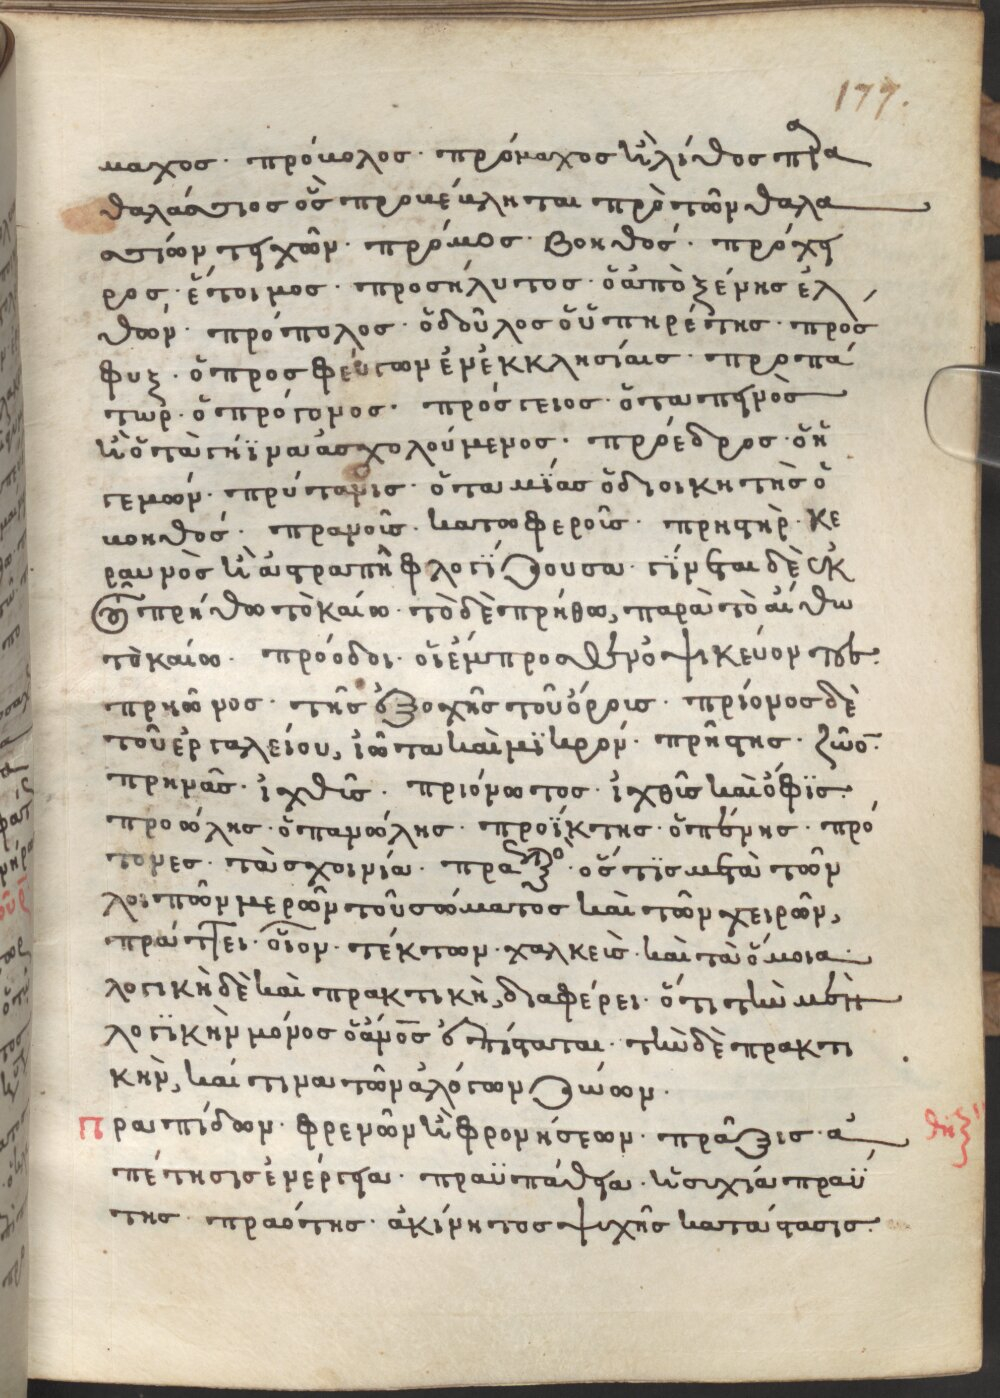 177.
μαχος· πρόμολος· πρόμαχος κὶ λίθος παρα
θαλάσσιος ὃς προκέκληται πρὸ τῶν θαλα
σσίων τειχῶν· πρόμος· βοηθός· πρόχει
ρος, ἕτοιμος· προσήλυτος· ὁ ἀπὸ ξένης ἐλ
θών· πρόσπολος· ὁ δοῦλος ὁ ὑπηρέτης· πρόσ
φυξ· ὁ προσφεύγων ἐν ἐκκλησίαις· προπά
τωρ· ὁ πρότονος· πρόστειος· ὁ ταπεινὸς
κὶ ὁ τὰ γήϊνα ἀσχολούμενος· πρόεδρος· ὁ ἡ
γεμών· πρύτανις· ὁ ταμίας ὁ διοικητὴς ὁ
βοηθός· πρανοῖς· κατωφεροῖς· πρηστὴρ· κε
ραυνὸς κὶ ἀστραπὴ φλογίζουσα· γίνεται δὲ ἐκ
τοῦ πρήθω τὸ καίω· τὸ δὲ πρήθω, παρὰ τὸ αἴθω
τὸ καίω· πρόοδοι· οἱ ἔμπροσθεν ὀψικεύοντες·
πρηῶνος· τῆς ἐξοχῆς τοῦ ὄρους· πρίονος δὲ
τοῦ ἐργαλείου, ἰῶτα καὶ μϊκρόν· πρῆστης· ζῶον·
πρημάς· ἰχθῦς· πριόνωτος· ἰχθῦς καὶ ὄφϊς·
προώλης· ὁ πανώλης· προΐκτης· ὁ πένης· πρό
τονες· τὰ σχοινία· ὅς τϊς μετὰ τῶν
λοιπῶν μερῶν τοῦ σώματος καὶ τῶν χειρῶν,
πράττει· οἷον· τέκτων· χαλκεὺς καὶ τὰ ὅμοια·
λογικὴ δὲ καὶ πρακτικὴ, διαφέρει· ὅτι τὴν μὲν
λογϊκὴν μόνος ὁ ἄνος ἐπίσταται· τὴν δὲ πρακτι
κὴν, καί τινα τῶν ἀλόγων ζώων·
Πραπίδων· φρενῶν κὶ φρονήσεων· πρᾶξις· ἀ
πέτησις ἐνέργεια· πραϋπάθεια· ἡσυχία πραΰ
της· πραότης· ἀκίνητος ψυχῆς κατάστασις·